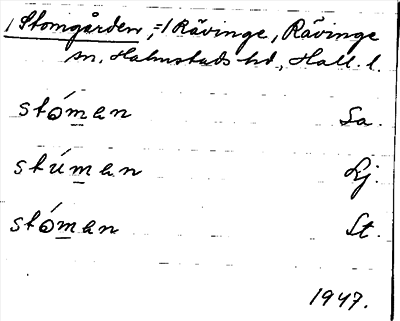 / Stomgården, =/ Rävinge, Rävinge
sn, Halmstads hd, Hall. l.
stóman Sa.
stúman Lj.
stóman St.
1947.